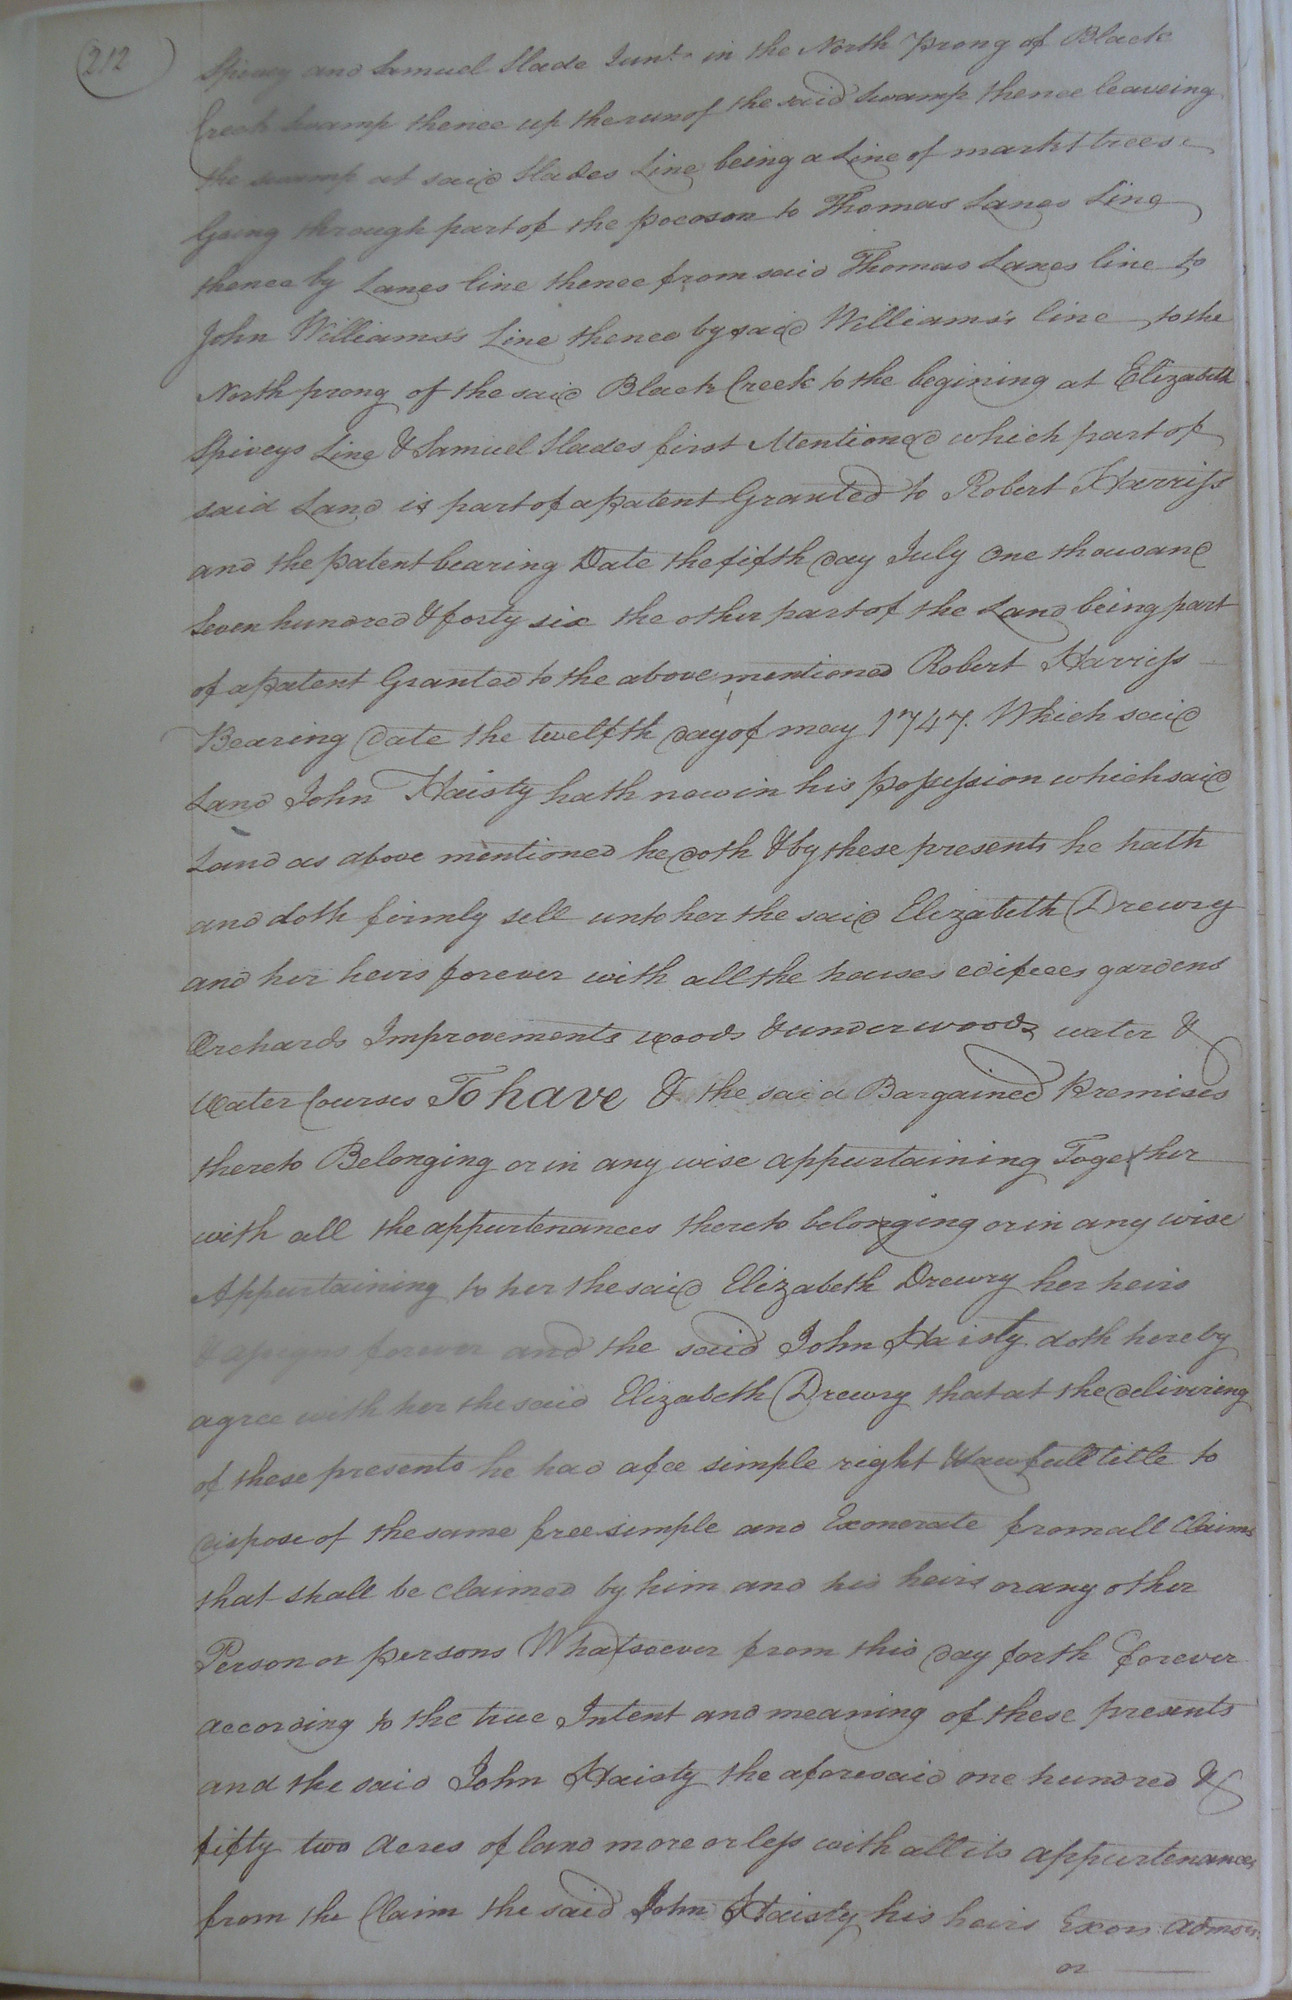 212
Spivey and Samuel Slade Junr. in the North Prong of Black
Creek Swamp thence up the run of the said Swamp thence leaveing
the swamp at said Slades Line being a Line of markt trees
Going through part of the pocoson to Thomas Lanes Line
thence by Lanes line thence from said Thomas Lanes line to
John Williams's Line thence by said Williams's line to the
North prong of the said Black Creek to the begining at Elizabeth
Spiveys Line & Samuel Slades first Mentioned which part of
said Land is part of a patent Granted to Robert Harriss
and the patent bearing Date the fifth day July One thousand
Seven hundred & forty six the other part of the Land being part
of a patent Granted to the above mentioned Robert Harriss
Bearing date the twelfth day of may 1747. Which said
Land John Haisty hath now in his possession which said
Land as above mentioned he doth & by these presents he hath
and doth firmly sell unto her the said Elizabeth Drewry
and her heirs forever with all the houses edifices gardens
Orchards Improvements woods & underwoods water &
Water Courses To have & the said Bargained Premises
thereto Belonging or in any wise appurtaining Together
with all the appurtenances thereto belonging or in any wise
Appurtaining to her the said Elizabeth Drewry her heirs
& assigns forever and the said John Haisty doth hereby
agree with her the said Elizabeth Drewry that at the delivireng
of these presents he had a fee simple right & lawfull title to
dispose of the same free simple and Exonerate from all Claims
that shall be claimed by him and his heirs or any other
Person or persons Whatsoever from this day forth forever
according to the true Intent and meaning of these presents
and the said John Haisty the aforesaid one hundred &
fifty two Acres of land more or less with all its appurtenances
from the Claim the said John Haisty his heirs Exors Admors
or